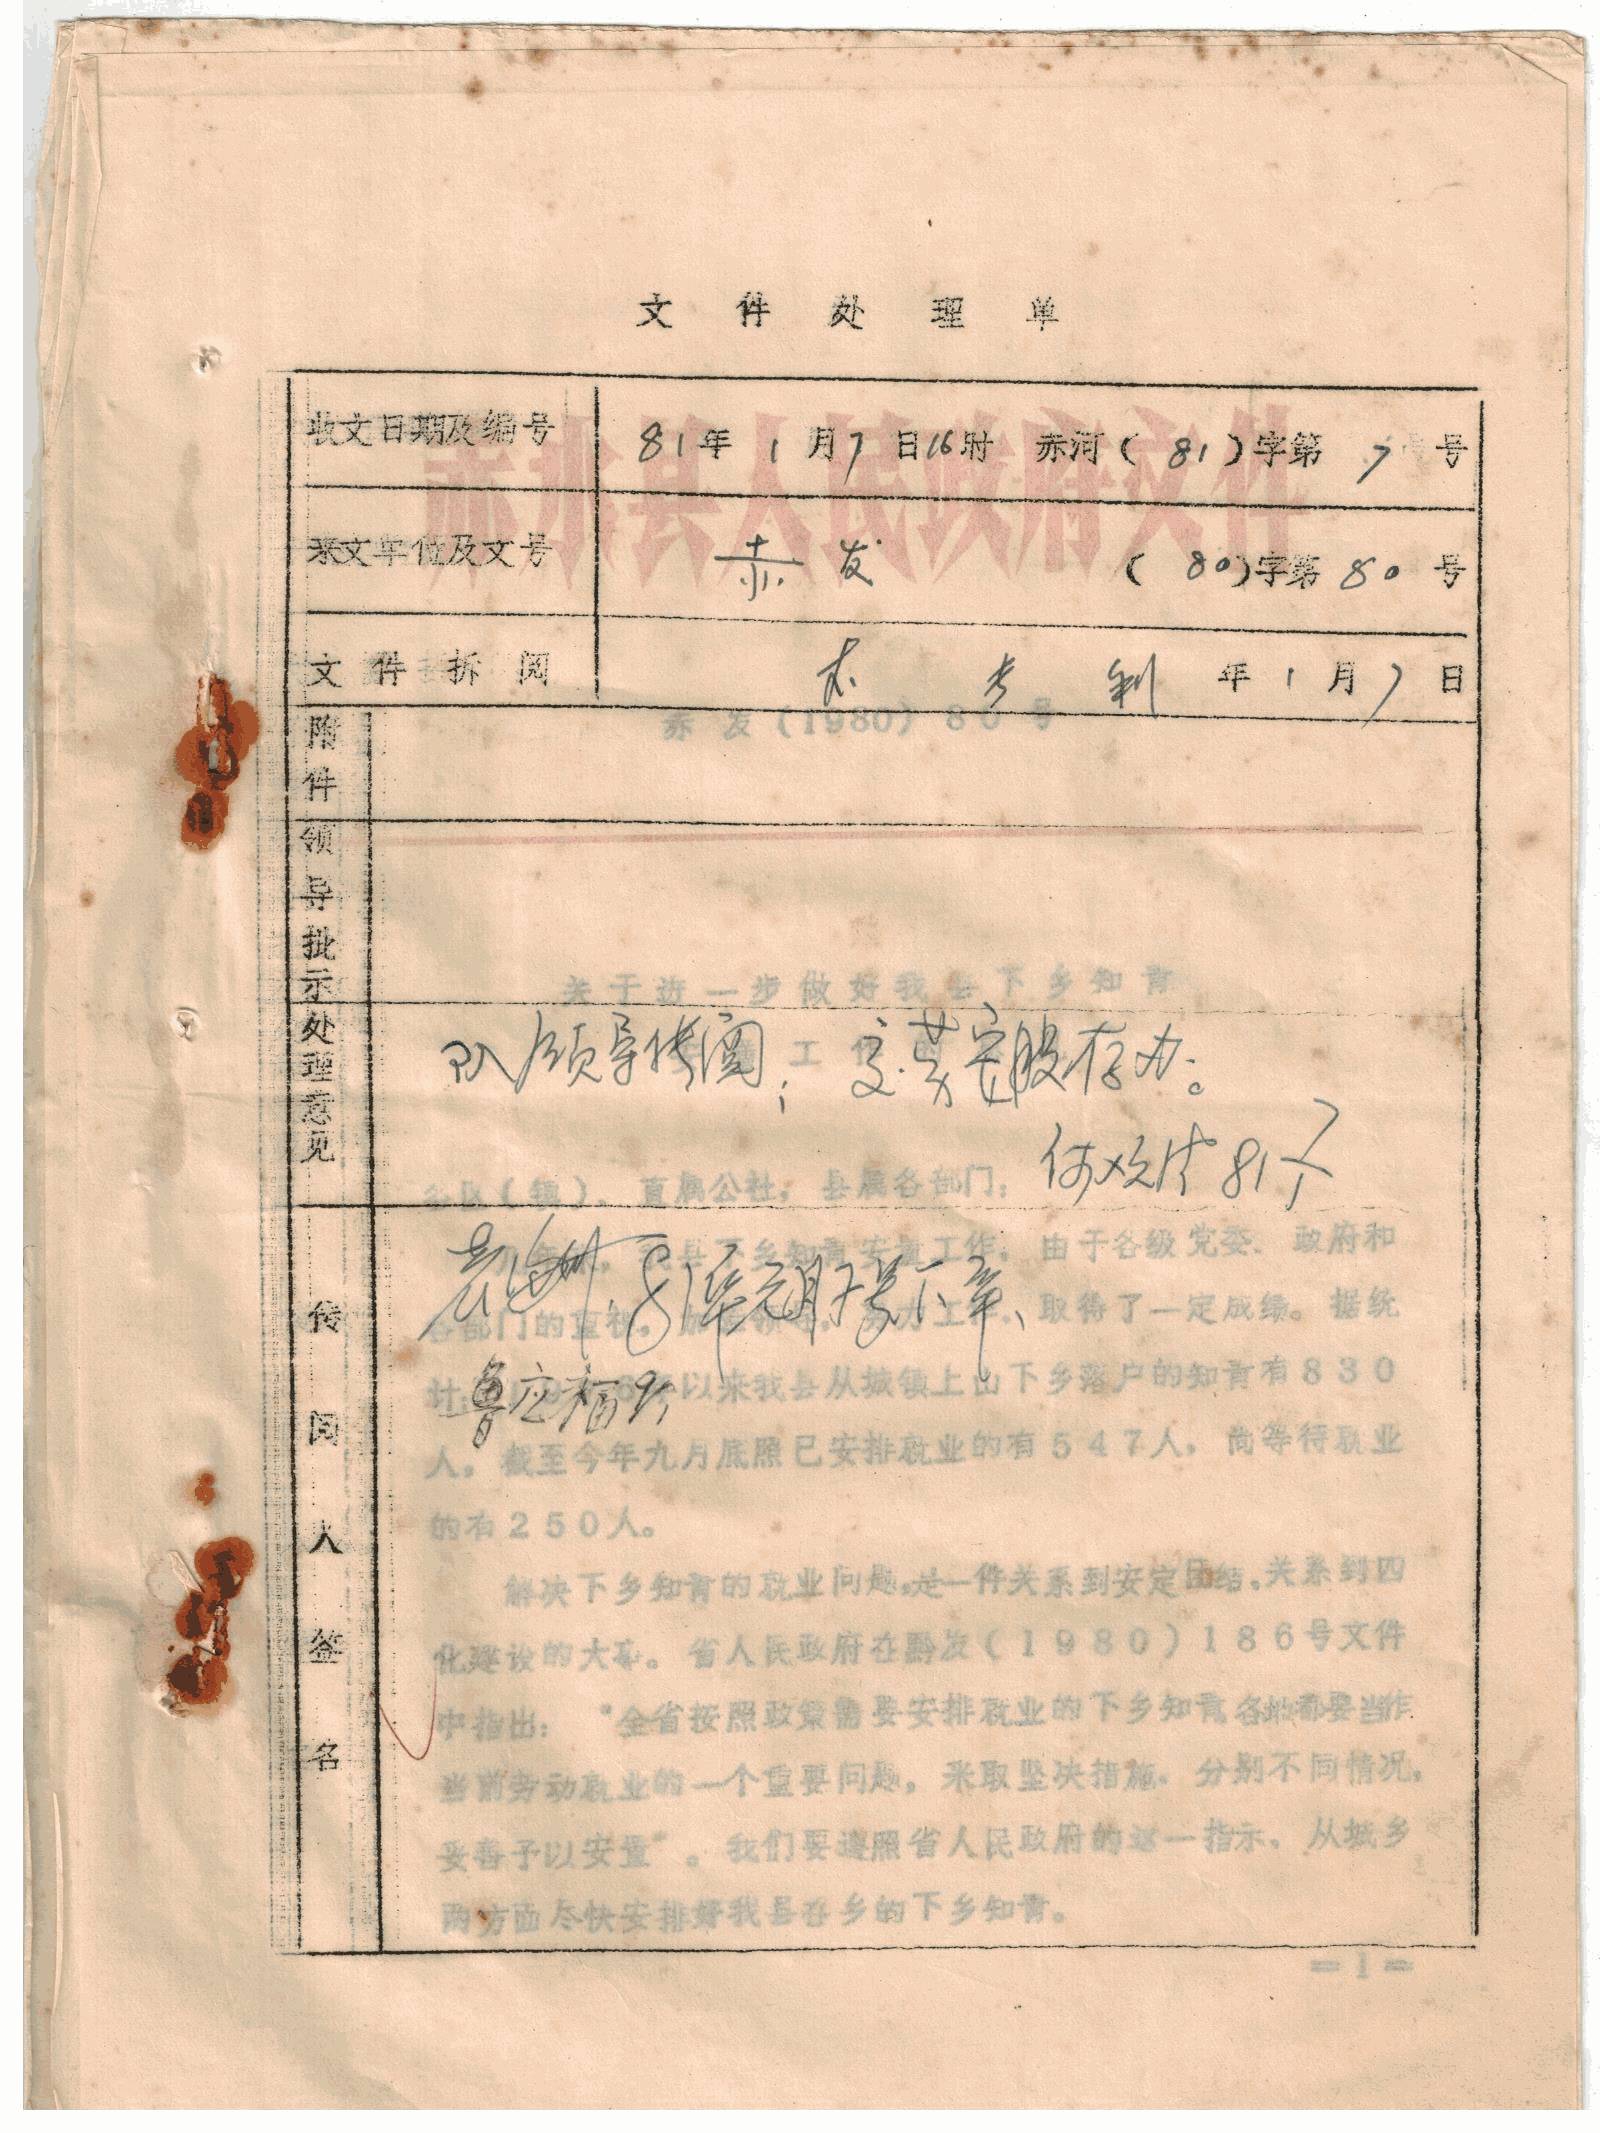 文件处理单
收文日期及编号 81年1月7日16时 赤河(81)字第7号
来文单位及文号 赤发 (80)字第80号
文件拆阅 年1月7日
赤水县人民政府文件
赤发(1980)80号
附件
领导批示
关于进一步做好我县下乡知青
工作
处理意见
队领导传阅；交劳安股存办。
各区(镇)、直属公社，县属各部门：
81
传阅人签名
县下乡知青安置工作，由于各级党委、政府和
各部门的重视，加强领导，努力工作、取得了一定成绩。据统
81年元月7号下午、
鲁应福
以来我县从城镇上山下乡落户的知青有830
人，截至今年九月底照已安排就业的有547人，尚等待就业
的有250人。
解决下乡知青的就业问题，是一件关系到安定团结，关系到四
化建设的大事。省人民政府在黔发(1980)186号文件
中指出：“全省按照政策需要安排就业的下乡知青，各地都要当作
当前劳动就业的一个重要问题，采取坚决措施，分别不同情况，
妥善予以安置”。我们要遵照省人民政府的这一指示，从城乡
两方面尽快安排好我县在乡的下乡知青。
=1=